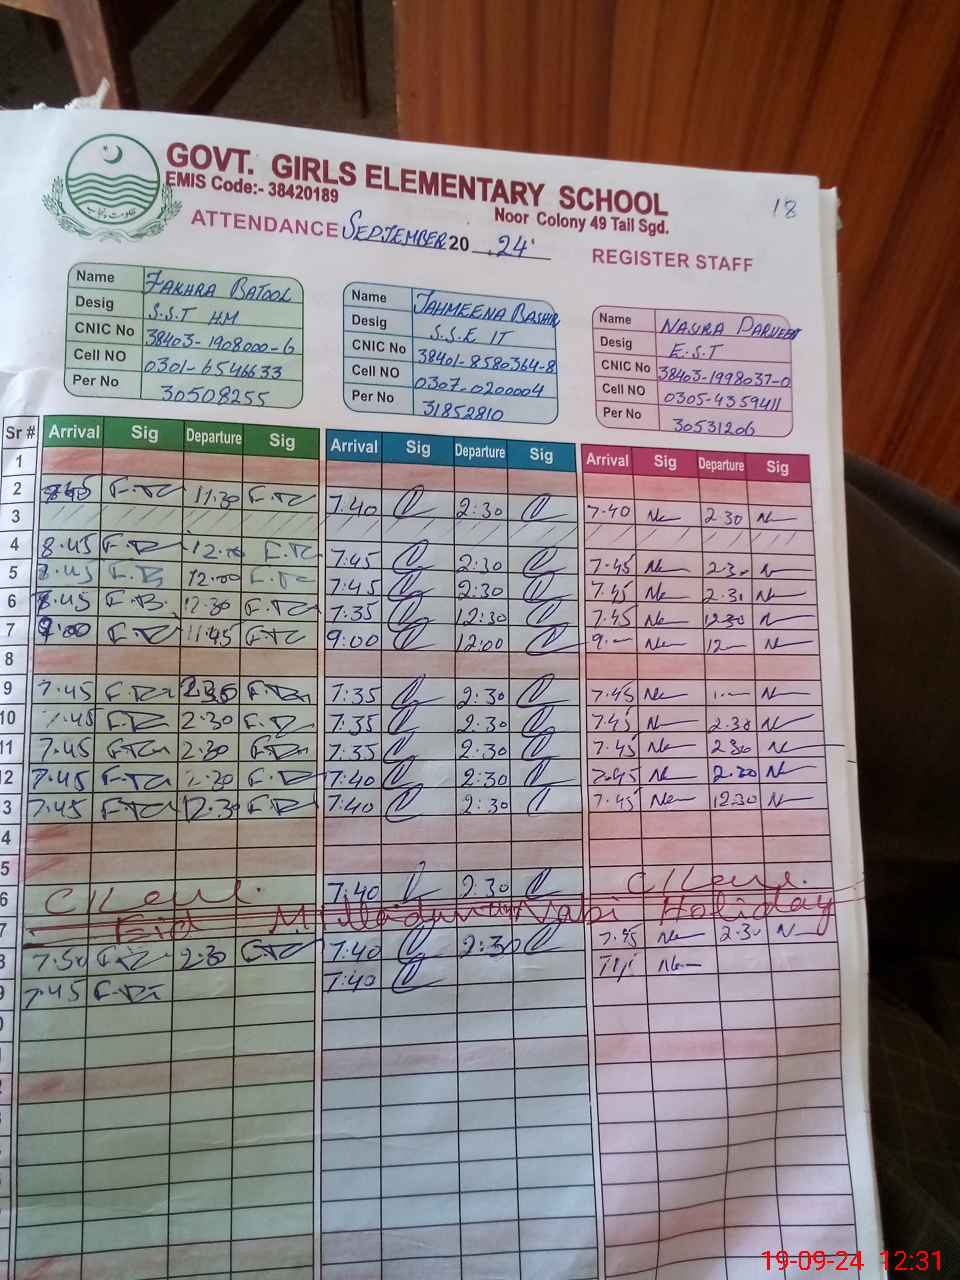 GOVT. GIRLS ELEMENTARY SCHOOL
EMIS Code:- 38420189
Noor Colony 49 Tail Sgd.
18
ATTENDANCE SEPTEMBER 20 24
REGISTER STAFF
Name FAKHRA BATOOL
Desig S.S.T HM
CNIC No 38403-1908000-6
Cell NO 0301-6546633
Per No 30508255
Name TAHMEENA BASHIR
Desig S.S.E IT
CNIC No 38401-8580364-8
Cell NO 0307-0200004
Per No 31852810
Name NASRA PARVEEN
Desig E.S.T
CNIC No 38403-1998037-0
Cell NO 0305-4359411
Per No 30531206
Sr # Arrival Sig Departure Sig Arrival Sig Departure Sig Arrival Sig Departure Sig
1
2 8:45 11:30 7:40 2:30 7.40 2.30
3
4 8.45 12.00 7:45 2:30 7.45 2.30
5 8.45 12.00 7:45 2:30 7.45 2.30
6 8.45 12.30 7:35 12:30 7.45 12.30
7 9:00 11:45 9:00 12:00 9. 12
8
9 7.45 2.30 7:35 2:30 7.45
10 7.45 2.30 7:35 2:30 7.45 2.30
11 7.45 2.30 7:35 2:30 7.45 2.30
12 7.45 2.30 7:40 2:30 7.45 2.30
3 7.45 12.30 7:40 2:30 7.45 12.30
4
5
6 C/Leave. 7:40 2:30 C/Leave.
7 Eid Milladun Nabi Holiday
8 7.50 2:30 7:40 2:30 7.45 2.30
9 7.45 7:40
19-09-24 12:31